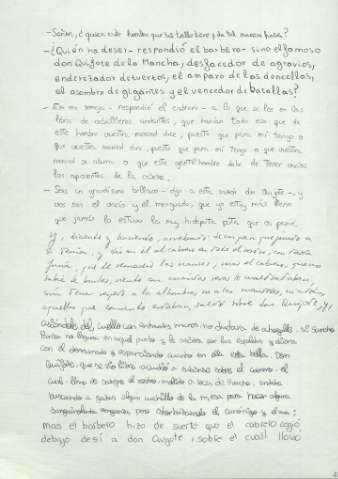 - Señor, ¿quién este hombre que tal talle tiene y de tal manera habla?
- ¿Quién ha de ser - respondió el barbero - sino el famoso
don Quijote de la Mancha, desfacedor de agravios,
enderezador de tuertos, el amparo de las doncellas,
el asombro de gigantes y el vencedor de batallas?
- Eso me semeja - respondió el cabrero - a lo que se lee en los
libros de caballeros andantes, que hacían todo eso que de
este hombre vuestra merced dice, puesto que para mí tengo o
que vuestra merced
merced se burla o que este gentil hombre debe de tener vacíos
los aposentos de la cabeza.
- Sois un grandísimo bellaco - dijo a esta sazón don Quijote -, y
vos sois el vacío y el menguado, que yo estoy más lleno
que jamás lo estuvo la muy hideputa puta que os parió
Y, diciendo y haciendo, arrebató de un pan que junto a
sí tenía, y dio con él al cabrero en todo el rostro, con tanta
furia, que le remachó las narices; mas el cabrero, que no
sabía de burlas, viendo con cuántas veras le maltrataban,
sin tener respeto a la alhombra, ni a los manteles, ni a todos
aquellos que comiendo estaban, saltó sobre don Quijote, y
asiéndole del cuello con entrambas manos, no dudara de ahogalle, si Sancho
Panza no llegara en aquel punto y le asiera por las espaldas y diera
con él
Quijote, que se vio libre, acudió a subirse sobre el cabrero, el
cual, lleno de sangre el rostro, molido a coces de Sancho, andaba
buscando a gatas algún cuchillo de la mesa para hacer alguna
sanguinolenta venganza, pero estorbábanselo el canónigo y el cura;
mas el barbero hizo de suerte que el cabrero cogió
debajo de sí a don Quijote, sobre el cual llovió